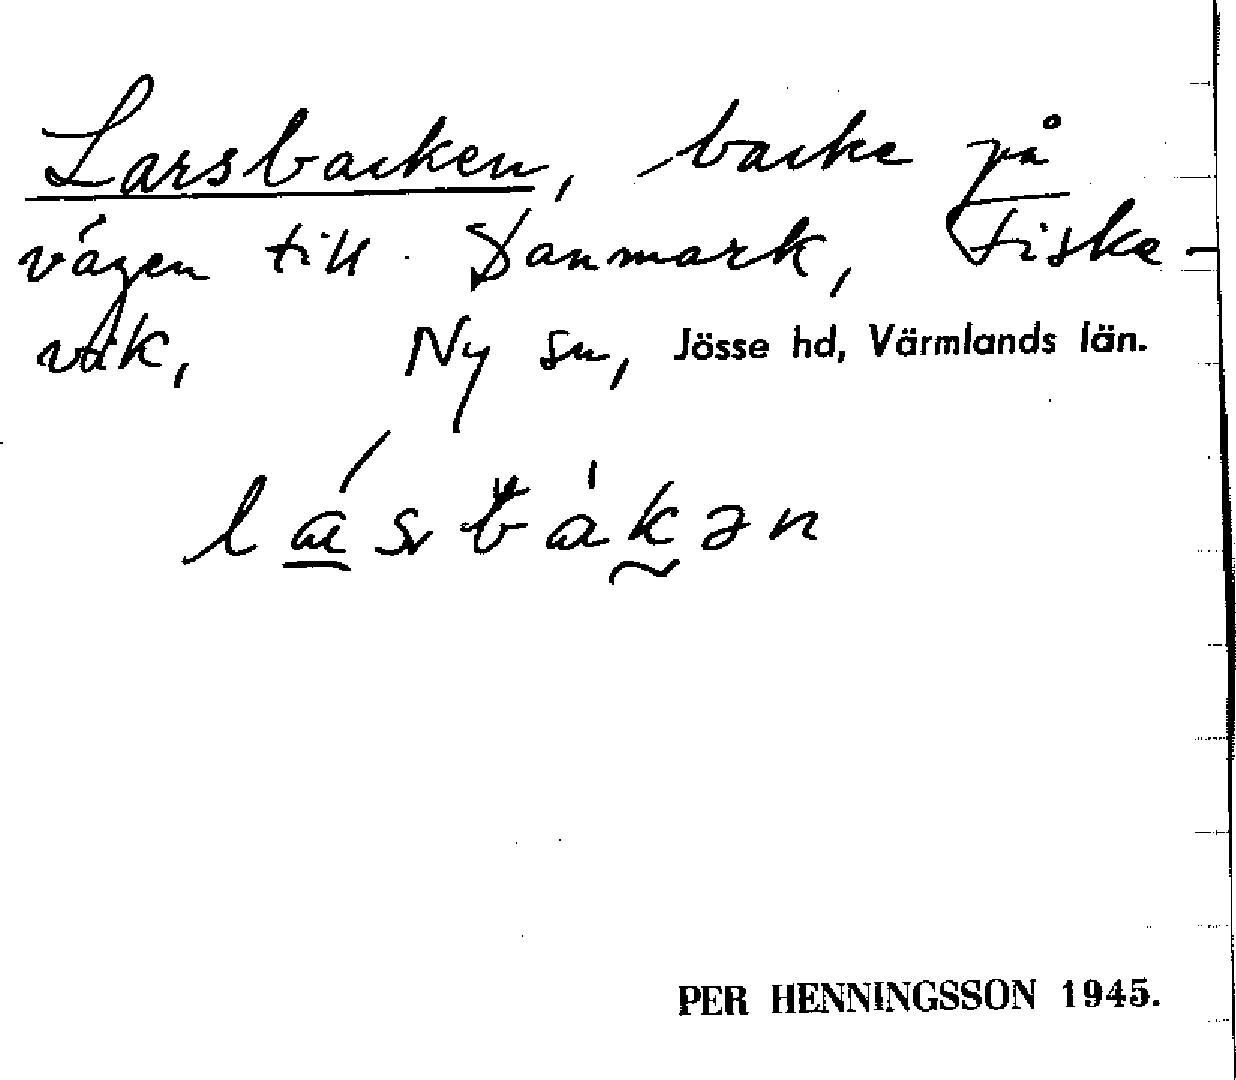 Larsbacken, backe på
vägen till Danmark, Fiske-
vik, Ny sn, Jösse hd, Värmlands län.
lá̱sbàkən
PER HENNINGSSON 1945.